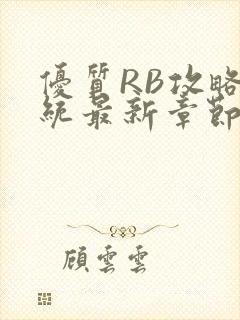 優質RB攻略
統最新章節
顧雲雲